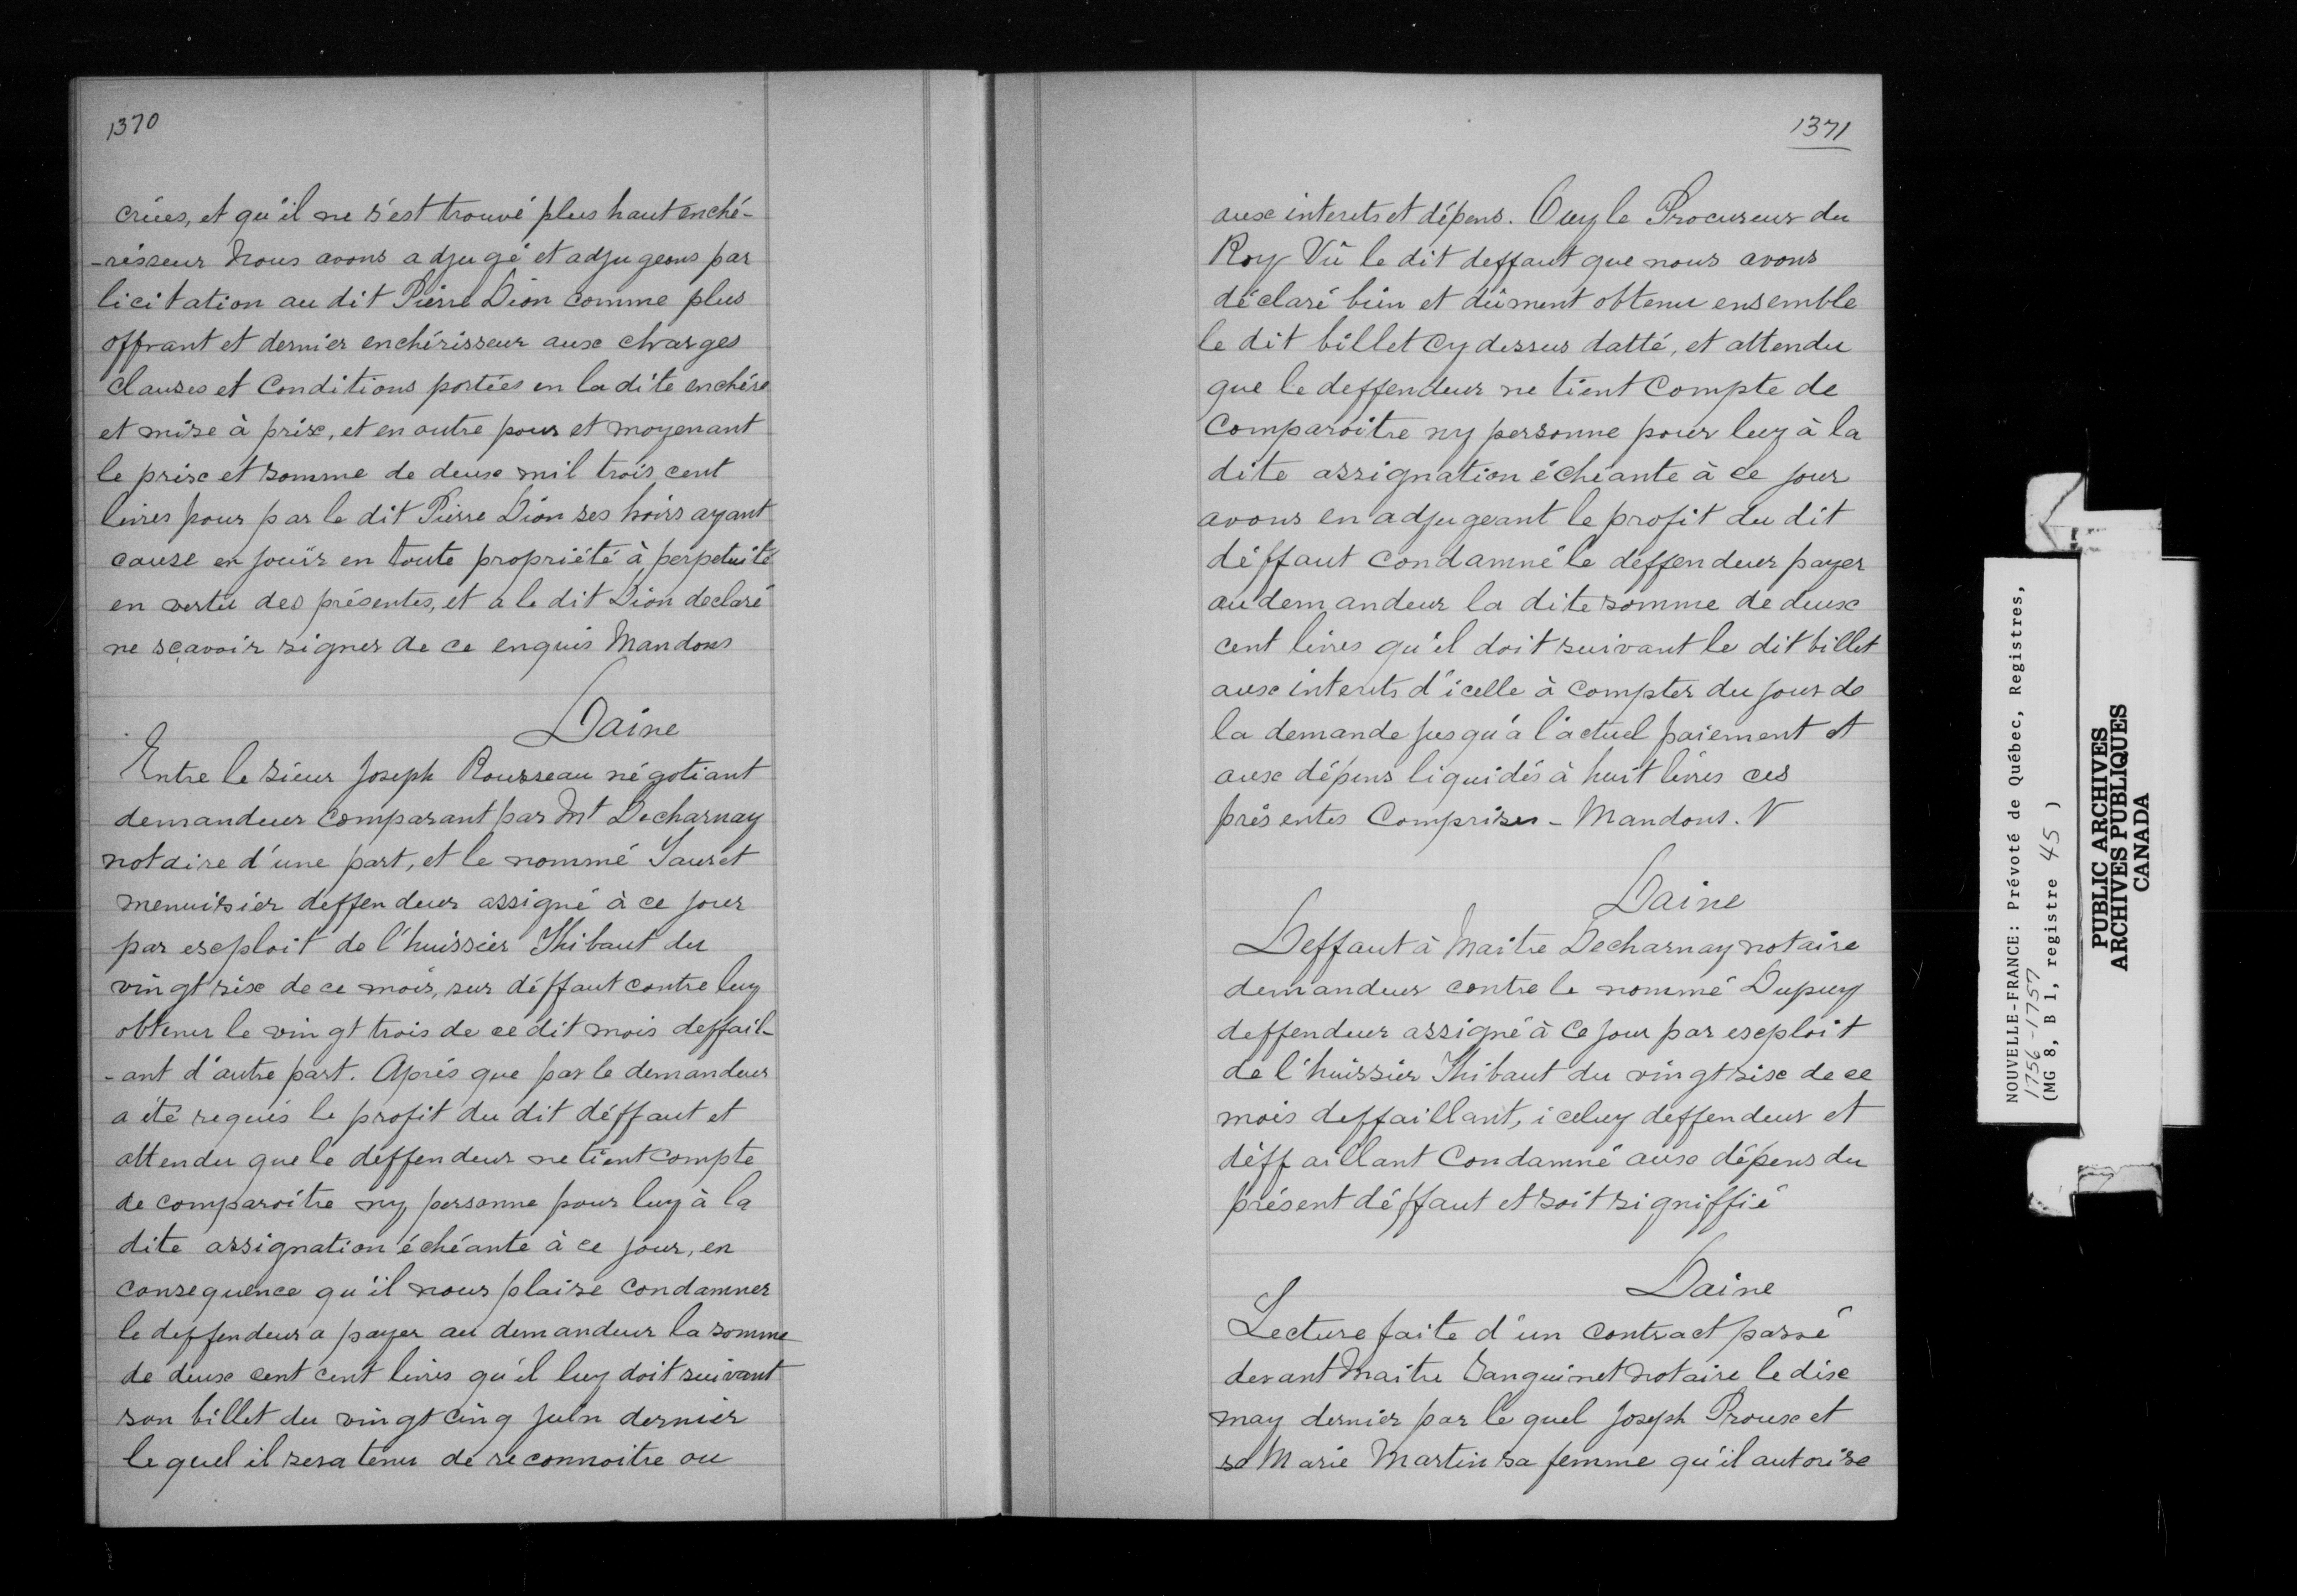 1370
criées, et qu'il ne s'est trouvé plus haut enché-
-risseur Nous avons adjugé et adjugeons par
licitation au dit Pierre Dion comme plus
offrant et dernier enchérisseur aux charges
clauses et Conditions portées en la dite enchère
et mise à prix, et en outre pour et moyenant
le prix et somme de deux mil trois cent
livres pour par le dit Pierre Dion ses hoirs ayant
cause en jouir en toute propriété à perpetuité
en vertu des présentes, et a le dit Dion declaré
ne sçavoir signer de ce enquis Mandons
Daine
Entre le sieur Joseph Rousseau négotiant
demandeur comparant par Mt Decharnay
notaire d'une part, et le nommé Sauret
menuisier deffendeur assigné à ce jour
par exploit de l'huissier Thibaut du
vingt six de ce mois, sur déffaut contre luy
obtenu le vingt trois de ce dit mois deffail-
-ant d'autre part. Après que par le demandeur
a été requis le profit du dit déffaut et
attendu que le déffendeur ne tient compte
de comparoitre ny personne pour luy à la
dite assignation échéante à ce jour, en
consequence qu'il nous plaise condamner
le deffendeur a payer au demandeur la somme
de deux cent cent livres qu'il luy doit suivant
son billet du vingt cinq juin dernier
lequel il sera tenu de reconnoitre ou
1371
aux interets et dépens. Ouy le Procureur du
Roy Vû le dit deffaut que nous avons
déclaré bien et dûment obtenu ensemble
le dit billet cy dessus datté, et attendu
que le deffendeur ne tient Compte de
Comparoitre ny personne pour luy à la
dite assignation échéante à ce jour
avons en adjugeant le profit du dit
déffaut condamné le déffendeur payer
au demandeur la dite somme de deux
cent livres qu'il doit suivant le dit billet
aux interets d'icelle à compter du jour de
la demande jusqu'à l'actuel paiement et
aux dépens liquidés à huit livres ces
présentes Comprises - Mandons. N
Daine
Deffaut à Maitre Decharnay notaire
demandeur contre le nommé Dupuy
deffendeur assigné à ce jour par exploit
de l'huissier Thibaut du vingt six de ce
mois deffaillant, iceluy deffendeur et
déffaillant Condamné aux dépens du
présent déffaut et soit signiffié
Daine
Lecture faite d'un contract passé
devant Maitre Sanguinet Notaire le dix
may dernier par lequel Joseph Proux et
se Marie Martin sa femme qu'il autorise
NOUVELLE-FRANCE: Prévoté de Québec, Registres,
1756-1757
(MG 8, B 1, registre 45)
PUBLIC ARCHIVES
ARCHIVES PUBLIQUES
CANADA